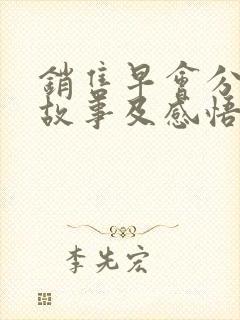 銷售早會分
故事及感悟
李先宏